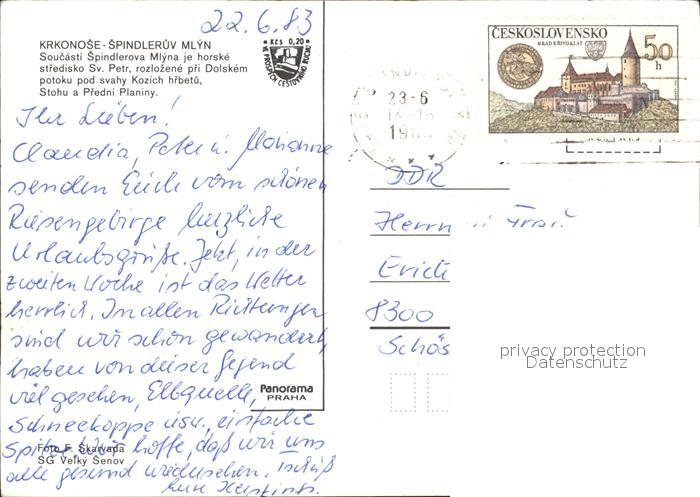 22.6.83
KRKONOŠE - ŠPINDLERŮV MLÝN
Součástí Špindlerova Mlýna je horské
středisko Sv. Petr, rozložené při Dolském
potoku pod svahy Kozích hřbetů,
Stohu a Přední Planiny.
Kčs 0,20
VE PROSPĚCH CESTOVNÍHO RUCHU
Ihr Lieben!
Claudia, Peter u. Marianne
senden Euch vom schönen
Riesengebirge herzliche
Urlaubsgrüße. Jetzt, in der
zweiten Woche ist das Wetter
herrlich. In allen Richtungen
sind wir schon gewandert,
haben von dieser Gegend
viel gesehen, Elbquelle,
Schneekoppe usw., einfache
hoffe, daß wir uns
alle gesund wiedersehen. Tschüß
Foto F. Škarvada
SG Velký Šenov
Panorama
PRAHA
ČESKOSLOVENSKO
HRAD KŘIVOKLÁT
50 h
23-6
DDR
Herrn u. Frau
Erich
8300
privacy protection
Datenschutz